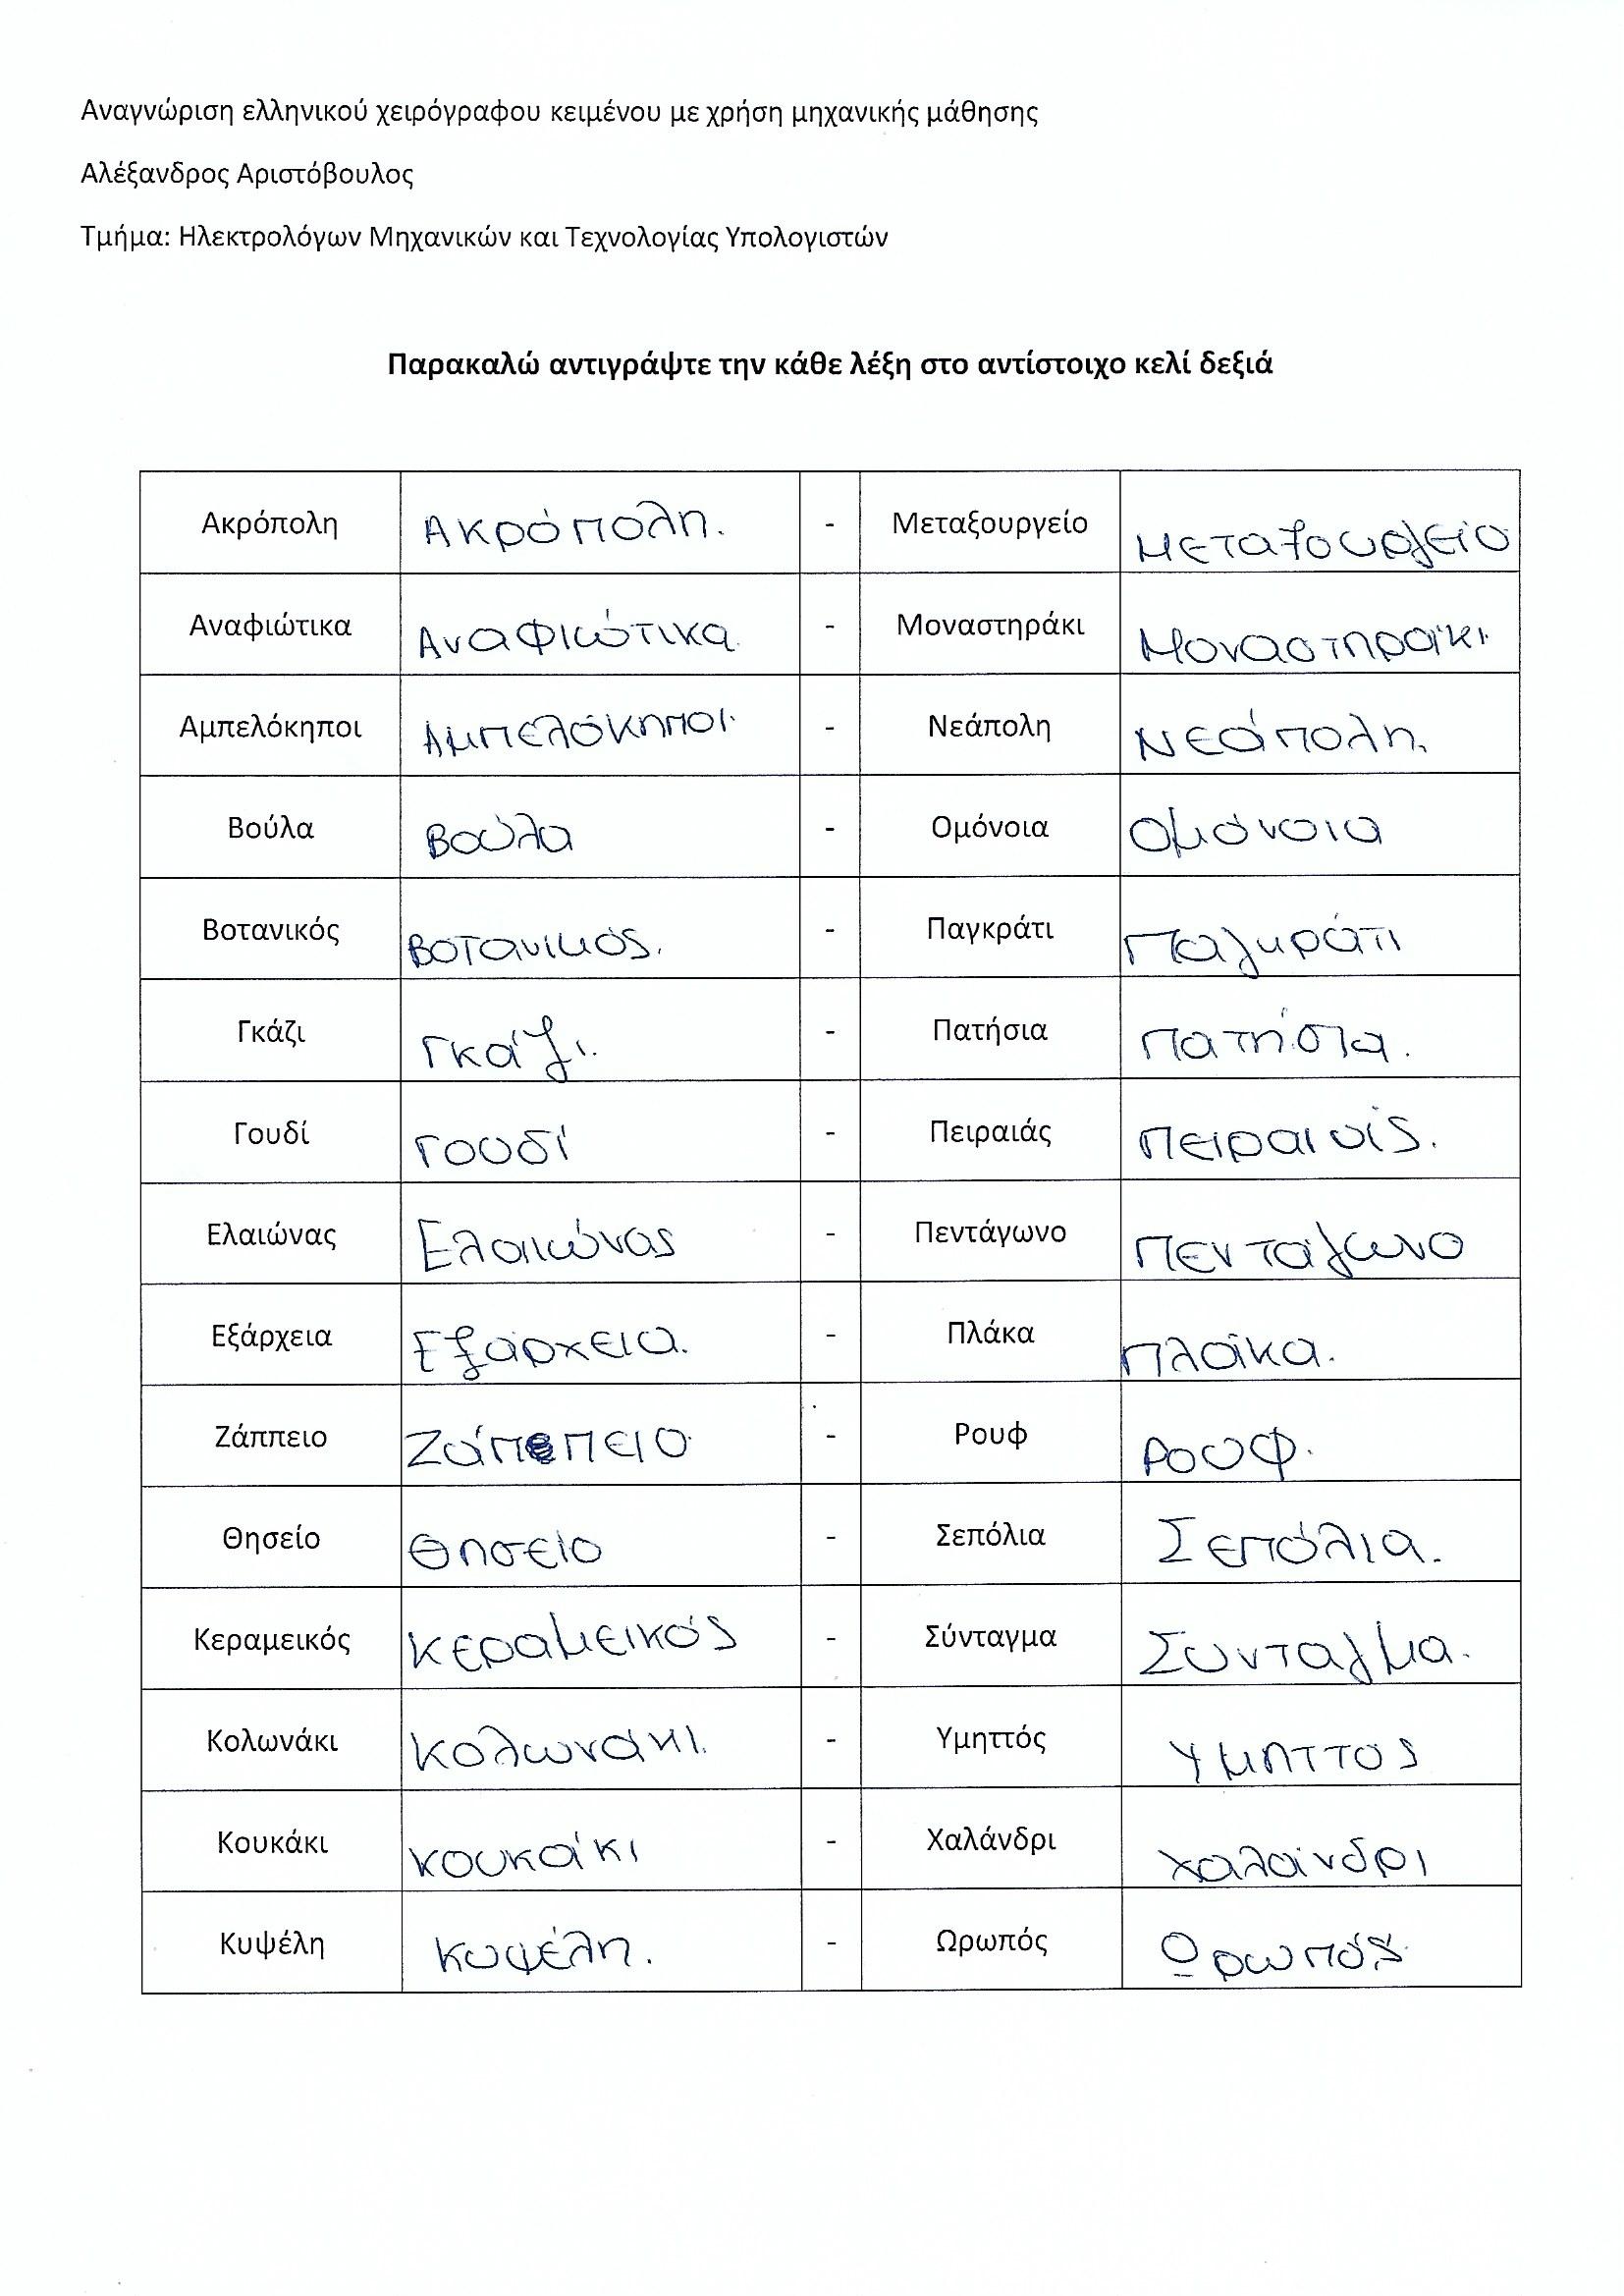 Αναγνώριση ελληνικού χειρόγραφου κειμένου με χρήση μηχανικής μάθησης
Αλέξανδρος Αριστόβουλος
Τμήμα: Ηλεκτρολόγων Μηχανικών και Τεχνολογίας Υπολογιστών
Παρακαλώ αντιγράψτε την κάθε λέξη στο αντίστοιχο κελί δεξιά
Ακρόπολη Ακρόπολη. - Μεταξουργείο Μεταξουργείο
Αναφιώτικα Αναφιώτικα. - Μοναστηράκι Μοναστηράκι.
Αμπελόκηποι Αμπελόκηποι. - Νεάπολη Νεάπολη.
Βούλα Βούλα - Ομόνοια Ομόνοια
Βοτανικός Βοτανικός. - Παγκράτι Παγκράτι
Γκάζι Γκάζι. - Πατήσια Πατήσια.
Γουδί Γουδί - Πειραιάς Πειραιάς.
Ελαιώνας Ελαιώνας - Πεντάγωνο Πεντάγωνο
Εξάρχεια Εξάρχεια. - Πλάκα Πλάκα.
Ζάππειο Ζάππειο. - Ρουφ Ρουφ.
Θησείο Θησείο - Σεπόλια Σεπόλια.
Κεραμεικός Κεραμεικός - Σύνταγμα Σύνταγμα.
Κολωνάκι Κολωνάκι. - Υμηττός Υμηττος
Κουκάκι Κουκάκι - Χαλάνδρι Χαλάνδρι
Κυψέλη Κυψέλη. - Ωρωπός Ωρωπός.